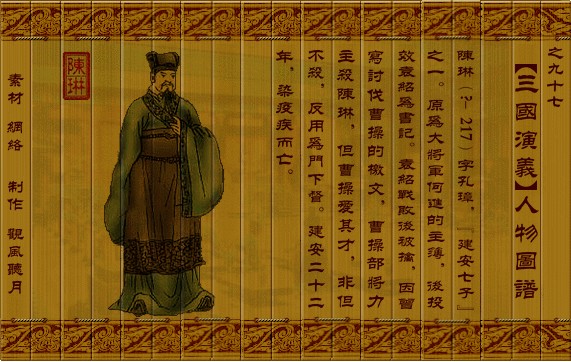 之九十七
【三國演義】人物圖譜
陳琳（?－217）字孔璋，『建安七子』
之一。原爲大將軍何進的主簿，後投
效袁紹爲書記。袁紹戰敗後被擒，因曾
寫討伐曹操的檄文，曹操部將力
主殺陳琳，但曹操愛其才，非但
不殺，反用爲門下督。建安二十二
年，染疫疾而亡。
陳琳
素材 網絡 制作 觀風聽月